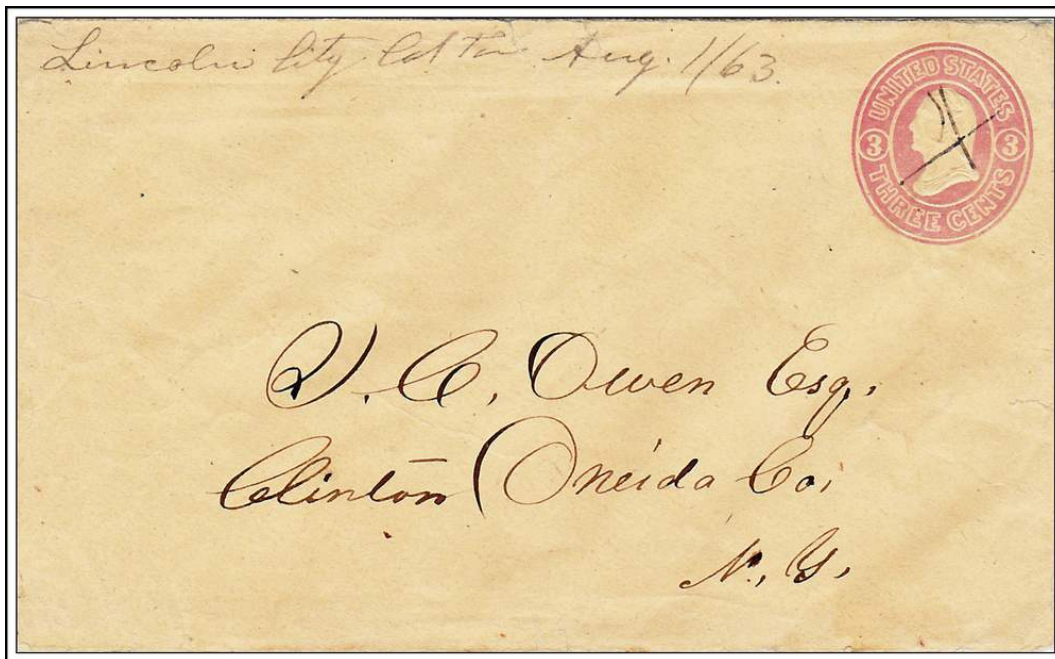 Lincoln City Col Ter Aug. 1/63.
UNITED STATES
3 3
THREE CENTS
D. C. Owen Esq.
Clinton Oneida Co.
N. Y.